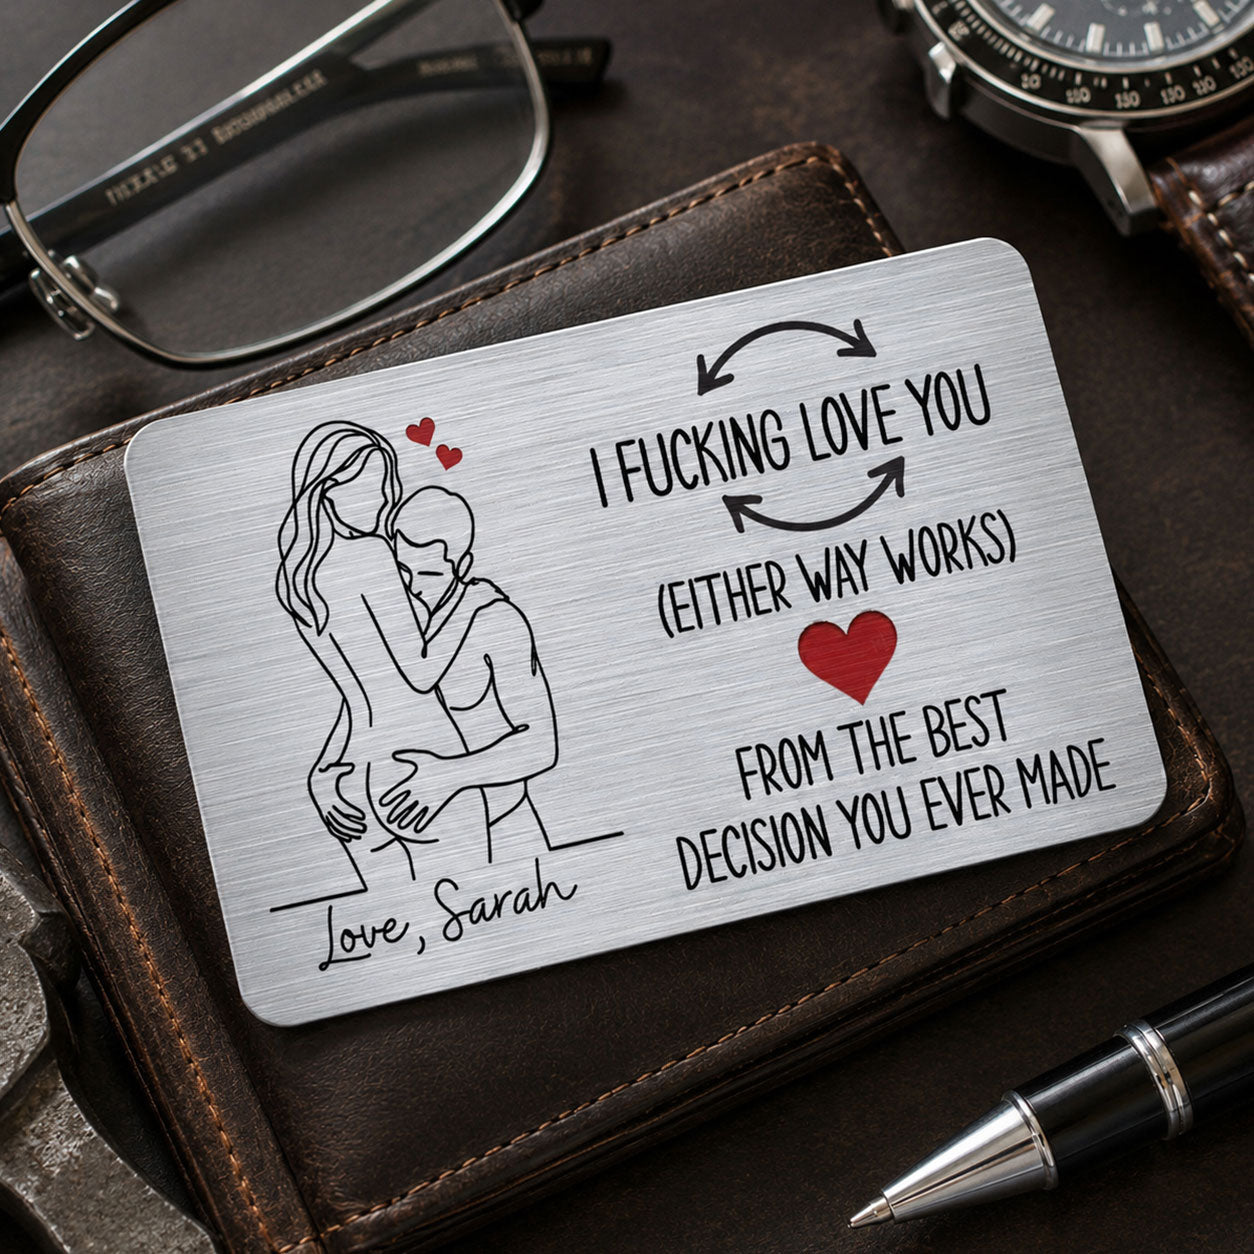 I FUCKING LOVE YOU
(EITHER WAY WORKS)
FROM THE BEST
DECISION YOU EVER MADE
Love, Sarah